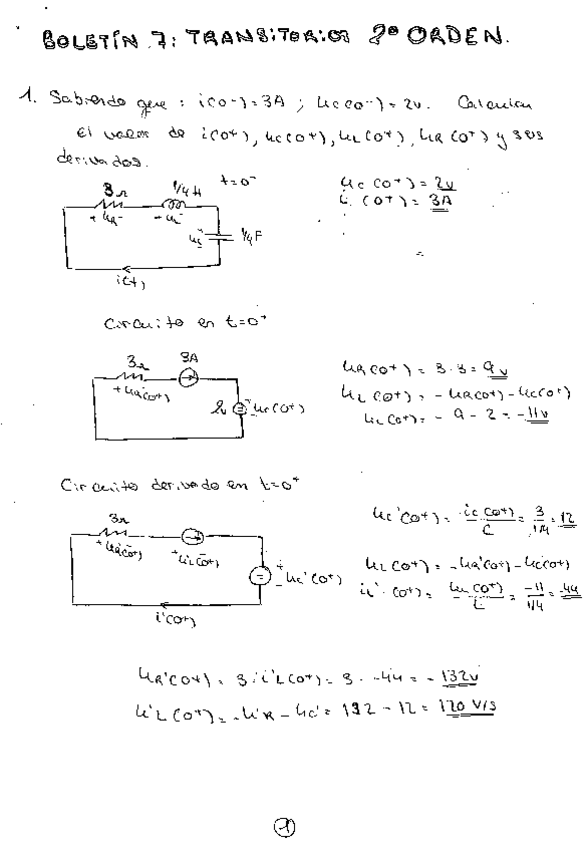 BOLETÍN 7: TRANSITORIOS 2º ORDEN.
1. Sabiendo que : i(0-) = 3A ; uc(0-) = 2v. Calcular
el valor de i(0+), uc(0+), uL(0+), uR(0+) y sus
derivadas.
3Ω 1/4 H t=0-
+ uR - + uL -
+ uc - 1/4 F
i(t)
uc(0+) = 2v
i(0+) = 3A
=
Circuito en t=0+
3Ω 3A
+ uR(0+) -
2v + uc(0+) -
uR(0+) = 3·3 = 9v
uL(0+) = - uR(0+) - uc(0+)
uL(0+) = - 9 - 2 = -11v
Circuito derivado en t=0+
3Ω
+ uR'(0+) - + uL'(0+) -
+ uc'(0+) -
i'(0+)
uc'(0+) = ic(0+)/C = 3/1/4 = 12
uL(0+) = - uR'(0+) - uc(0+)
iL'(0+) = uL(0+)/L = -11/1/4 = -44
uR'(0+) = 3·i'L(0+) = 3·-44 = -132v
u'L(0+) = -u'R - uc' = 132 - 12 = 120 V/s
1